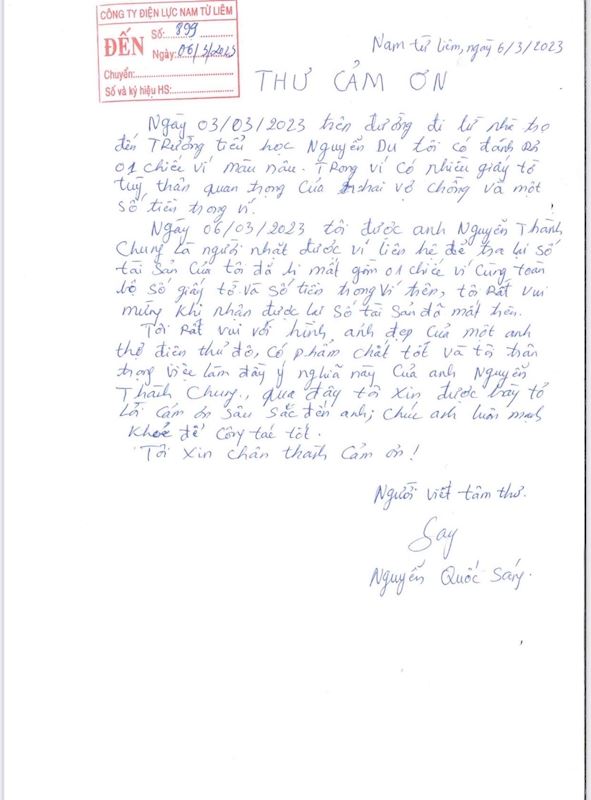 CÔNG TY ĐIỆN LỰC NAM TỪ LIÊM
ĐẾN
Số: 899
Ngày: 06/3/2023
Chuyển:
Số và ký hiệu HS:
Nam từ liêm, ngày 6/3/2023
THƯ CẢM ƠN
Ngày 03/03/2023 trên đường đi từ nhà trọ
đến Trường tiểu học Nguyễn Du tôi có đánh rơi
01 chiếc ví màu nâu. Trong ví có nhiều giấy tờ
tuỳ thân quan trọng của hai vợ chồng và một
số tiền trong ví.
Ngày 06/03/2023 tôi được anh Nguyễn Thành
Chung là người nhặt được ví liên hệ để trả lại số
tài sản của tôi đã bị mất gồm 01 chiếc ví cùng toàn
bộ số giấy tờ và số tiền trong ví trên, tôi rất vui
mừng khi nhận được lại số tài sản đã mất trên.
Tôi rất vui với hình ảnh đẹp của một anh
thợ điện thủ đô, có phẩm chất tốt và tôi trân
trọng việc làm đầy ý nghĩa này của anh Nguyễn
Thành Chung, qua đây tôi xin được bày tỏ
lời cảm ơn sâu sắc đến anh; chúc anh luôn mạnh
khoẻ để công tác tốt.
Tôi xin chân thành cảm ơn!
Người viết tâm thư.
Nguyễn Quốc